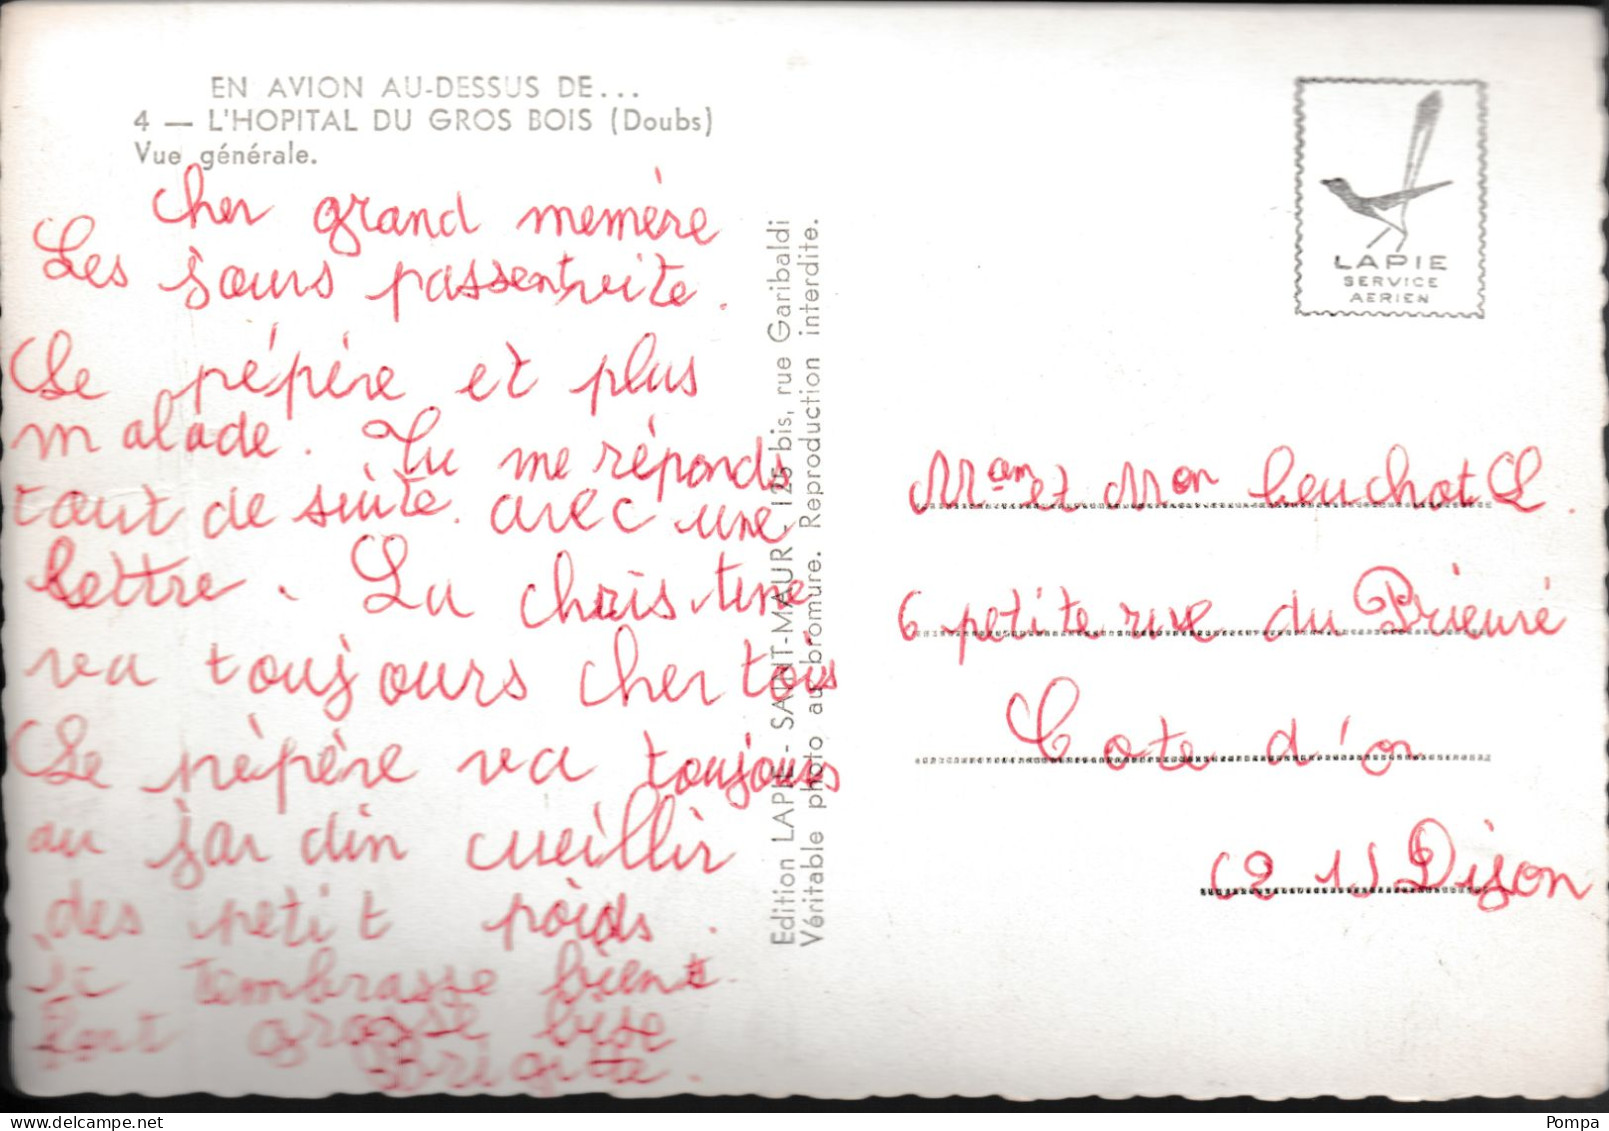 EN AVION AU-DESSUS DE...
4 — L'HOPITAL DU GROS BOIS (Doubs)
Vue générale.
Cher grand memère
Les jours passent vite.
Le pépère et plus
malade. Tu me réponds
tout de suite avec une
lettre. La christine
va toujours cher tois
Le pépère va toujours
au jardin cueillir
des petit poids.
Je tembrasse bient
fort grosse bise
Brigitte.
Edition LAPIE - SAINT-MAUR - 125 bis, rue Garibaldi
Véritable photo au bromure. Reproduction interdite.
LAPIE
SERVICE
AERIEN
Mam et Mon Ceuchot L
6 petite rue du Prieuré
Cote d'or
(21) Dijon
Pompa